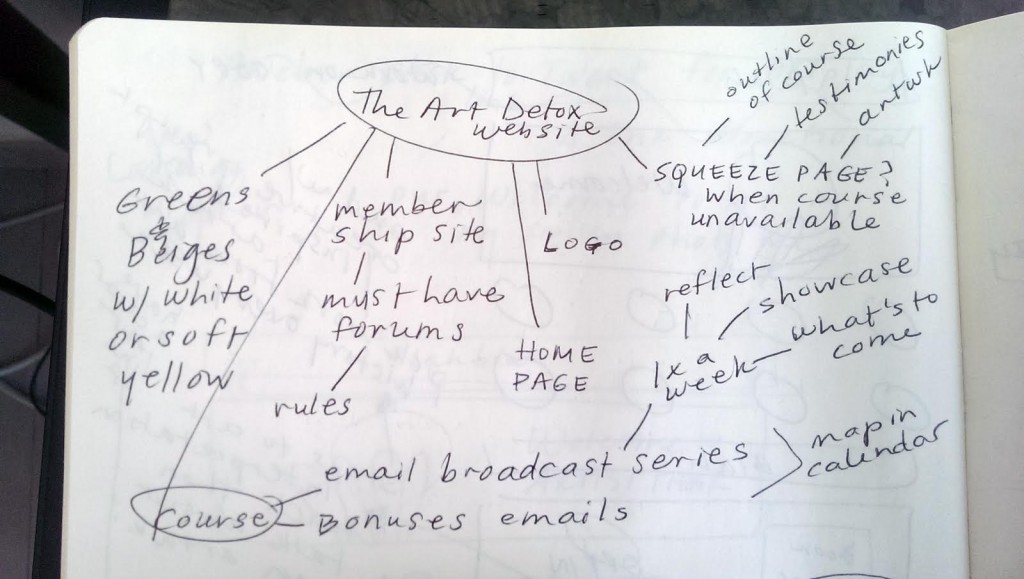 The Art Detox
website
Greens
&
Beiges
w/ white
or soft
yellow
member
ship site
must have
forums
rules
LOGO
HOME
PAGE
outline
of course
testimonies
artwk
SQUEEZE PAGE?
when course
unavailable
reflect
showcase
what's to
come
1x a
week
email broadcast series
map in
calendar
course
Bonuses emails